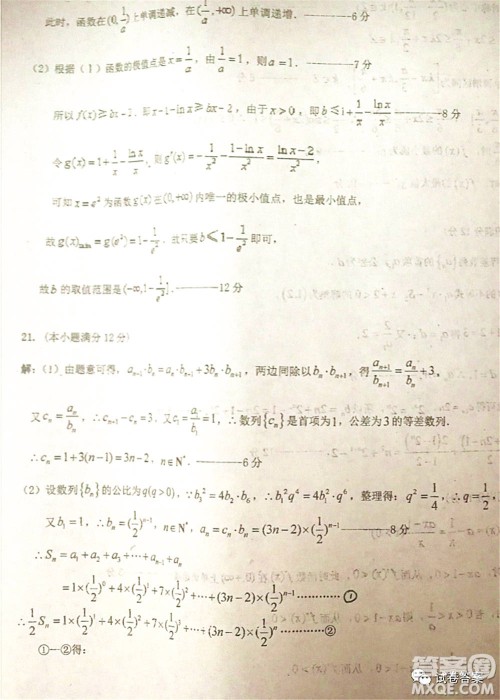 此时，函数在(0, 1/a)上单调递减，在(1/a, +∞)上单调递增．--------6分
（2）根据（1）函数的极值点是x=1/a，由1/a=1，则a=1．--------7分
所以f(x)≥bx-2，即x-1-lnx≥bx-2，由于x>0，即b≤1+1/x-lnx/x--------8分
令g(x)=1+1/x-lnx/x，则g'(x)=-1/x²-(1-lnx)/x²=(lnx-2)/x²，
可知x=e²为函数g(x)在(0,+∞)内唯一的极小值点，也是最小值点，
故g(x)min=g(e²)=1-1/e²，故只要b≤1-1/e²即可．
故b的取值范围是(-∞,1-1/e²]．--------12分
21．（本小题满分12分）
解：（1）由题意可得，aₙ₊₁·bₙ=aₙ·bₙ₊₁+3bₙ·bₙ₊₁，两边同除以bₙ·bₙ₊₁，得aₙ₊₁/bₙ₊₁=aₙ/bₙ+3，
又cₙ=aₙ/bₙ，∴cₙ₊₁-cₙ=3，又c₁=a₁/b₁=1，∴数列{cₙ}是首项为1，公差为3的等差数列．
∴cₙ=1+3(n-1)=3n-2．n∈N*．--------6分
（2）设数列{bₙ}的公比为q(q>0)，∵b₃²=4b₂·b₆，∴b₁²q⁴=4b₁²·q⁶，整理得：q²=1/4，∴q=1/2，
又b₁=1，∴bₙ=(1/2)ⁿ⁻¹，n∈N*，aₙ=cₙ·bₙ=(3n-2)×(1/2)ⁿ⁻¹--------8分
∴Sₙ=a₁+a₂+a₃+⋯+aₙ₋₁+aₙ
=1×(1/2)⁰+4×(1/2)¹+7×(1/2)²+⋯+(3n-2)×(1/2)ⁿ⁻¹⋯⋯⋯⋯①
∴1/2Sₙ=1×(1/2)¹+4×(1/2)²+7×(1/2)³+⋯+(3n-2)×(1/2)ⁿ⋯⋯⋯⋯②
①—②得：
试卷答案
答案圈
MXQE.COM